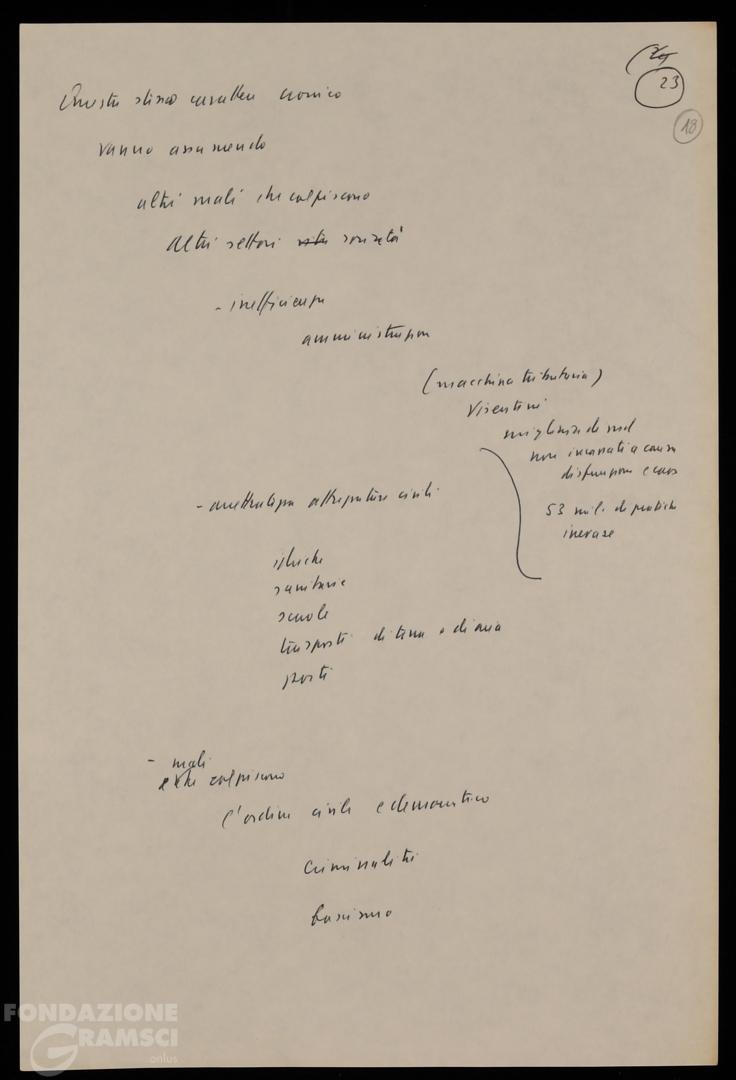 23
18
Questo stesso carattere cronico
vanno assumendo
altri mali che colpiscono
altri settori società
- inefficienza
amministrazione
(macchina tributaria)
Visentini
migliaia di mdi
non incassati a causa
disfunzioni e caos
53 mil. di pratiche
inevase
- arretratezza attrezzature civili
idriche
sanitarie
scuole
trasporti di terra e di aria
porti
- mali
che colpiscono
l'ordine civile e democratico
criminalità
fascismo
FONDAZIONE
GRAMSCI
onlus